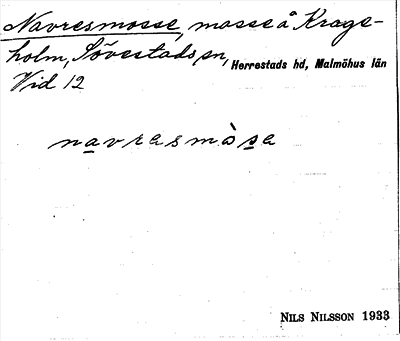 Navresmosse, mosse å Krage-
holm, Sövestads sn, Herrestads hd, Malmöhus län
Vid 12
navresmòsa
NILS NILSSON 1933